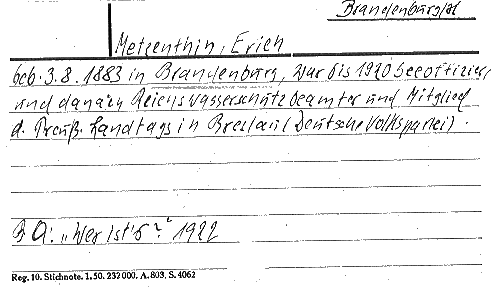 Brandenburg/H
Metzenthin, Erich
geb. 3.8.1883 in Brandenburg, war bis 1920 Seeoffizier,
und danach Reichswasserschutzbeamter und Mitglied
d. Preuß. Landtags in Breslau (Deutsche Volkspartei).
BA: „Wer ist's?" 1922
Reg. 10. Stichnote. 1. 50. 232000. A. 803. S. 4062